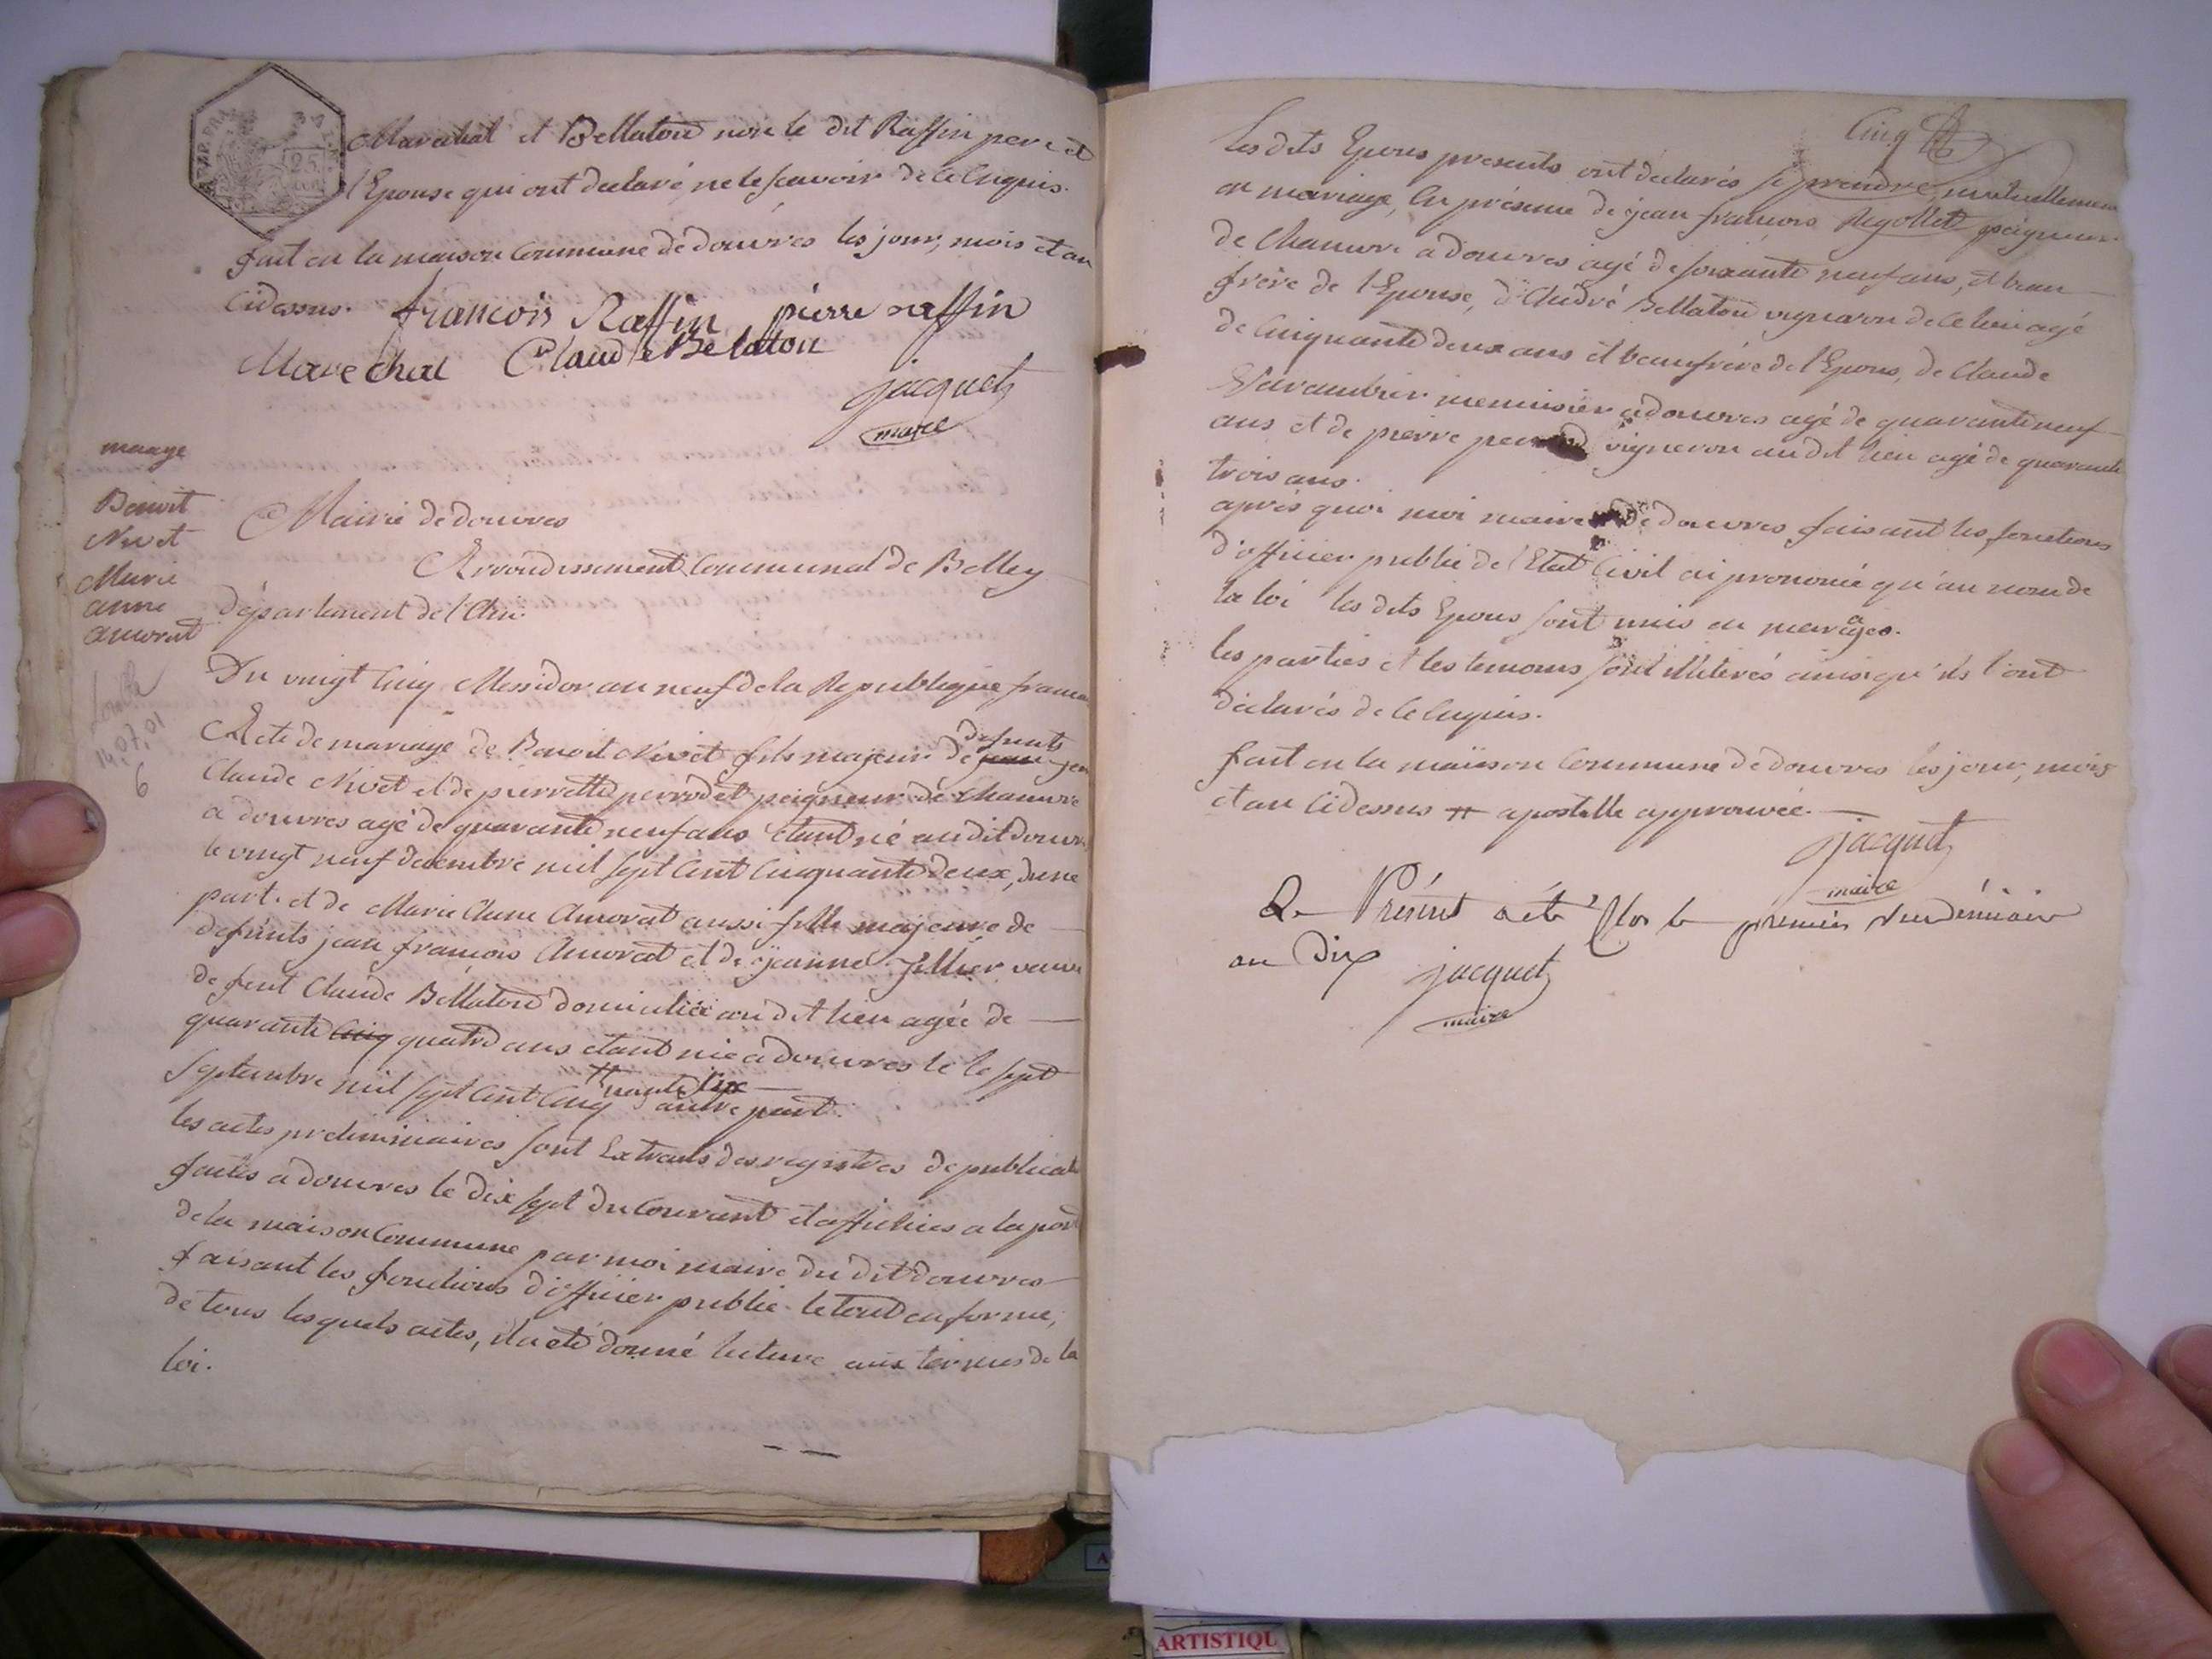 Marechal et Bellaton non le dit Raffin pere et
l'Epouse qui ont declaré ne le scavoir de ce enquis.
fait en la maison Commune de douvres les jour, mois et an
Cidessus. francois Raffin pierre raffin
Marechal Claude Belaton
jacquet
maire
mariage
Benoit
Nivet
Marie
anne
Amorat
14.07.01
6
Mairie de douvres
Arrondissement Communal de Belley
département de l'Ain.
Du vingt Cinq Messidor an neuf de la Republique france
defunts
Acte de mariage de Benoit Nivet fils majeur de jean
Claude Nivet et de pierrette perrodet peigneur de chanvre
a douvres agé de quarante neuf ans etant né au dit douvres
le vingt neuf decembre mil sept Cent Cinquante deux, dune
part. et de Marie Anne Amorat aussi fille majeure de
defunts jean francois Amorat et de jeanne veuve
de feut Claude Bellaton domiciliée au dit lieu agée de
quarante Cinq quatre ans etant née a douvres le le sept
Septembre mil sept Cent Cinq nante Six autre part.
les actes preliminaires sont Extraits des registres de publicat
faites a douvres le dix sept du Courant et affichées a la port
de la maison Commune par moi maire du dit douvres
faisant les fonctions d'officier public. le tout en forme,
de tous lesquels actes, il a eté donné lecture aux termes de la
loi.
Cinq
Les dits Epoux presents ont declarés se prendre mutuellement
en mariage, En présence de jean francois Regollet peigneur
de Chanvre a douvres agé de soixante neuf ans, et beau
frère de l'Epouse, d'André Bellaton vigneron de ce lieu agé
de Cinquante deux ans et beaufrère de l'Epoux, de Claude
Varambier menuisier a douvres agé de quarante neuf
ans et de pierre vigneron au dit lieu agé de quarante
trois ans.
après quoi moi maire de douvres faisant les fonctions
d'officier public de l'Etat Civil ai prononcé qu'au nom de
la loi les dits Epoux sont unis en mariages.
les parties et les temoins sont illiterés ainsi qu'ils l'ont
declarés de ce enquis.
fait en la maison Commune de douvres les jour, mois
et an Cidessus # apostille approuvée.
jacquet
maire
Le Présent a été Clos le premier Vendémiaire
an Dix jacquet
maire
ARTISTIQU